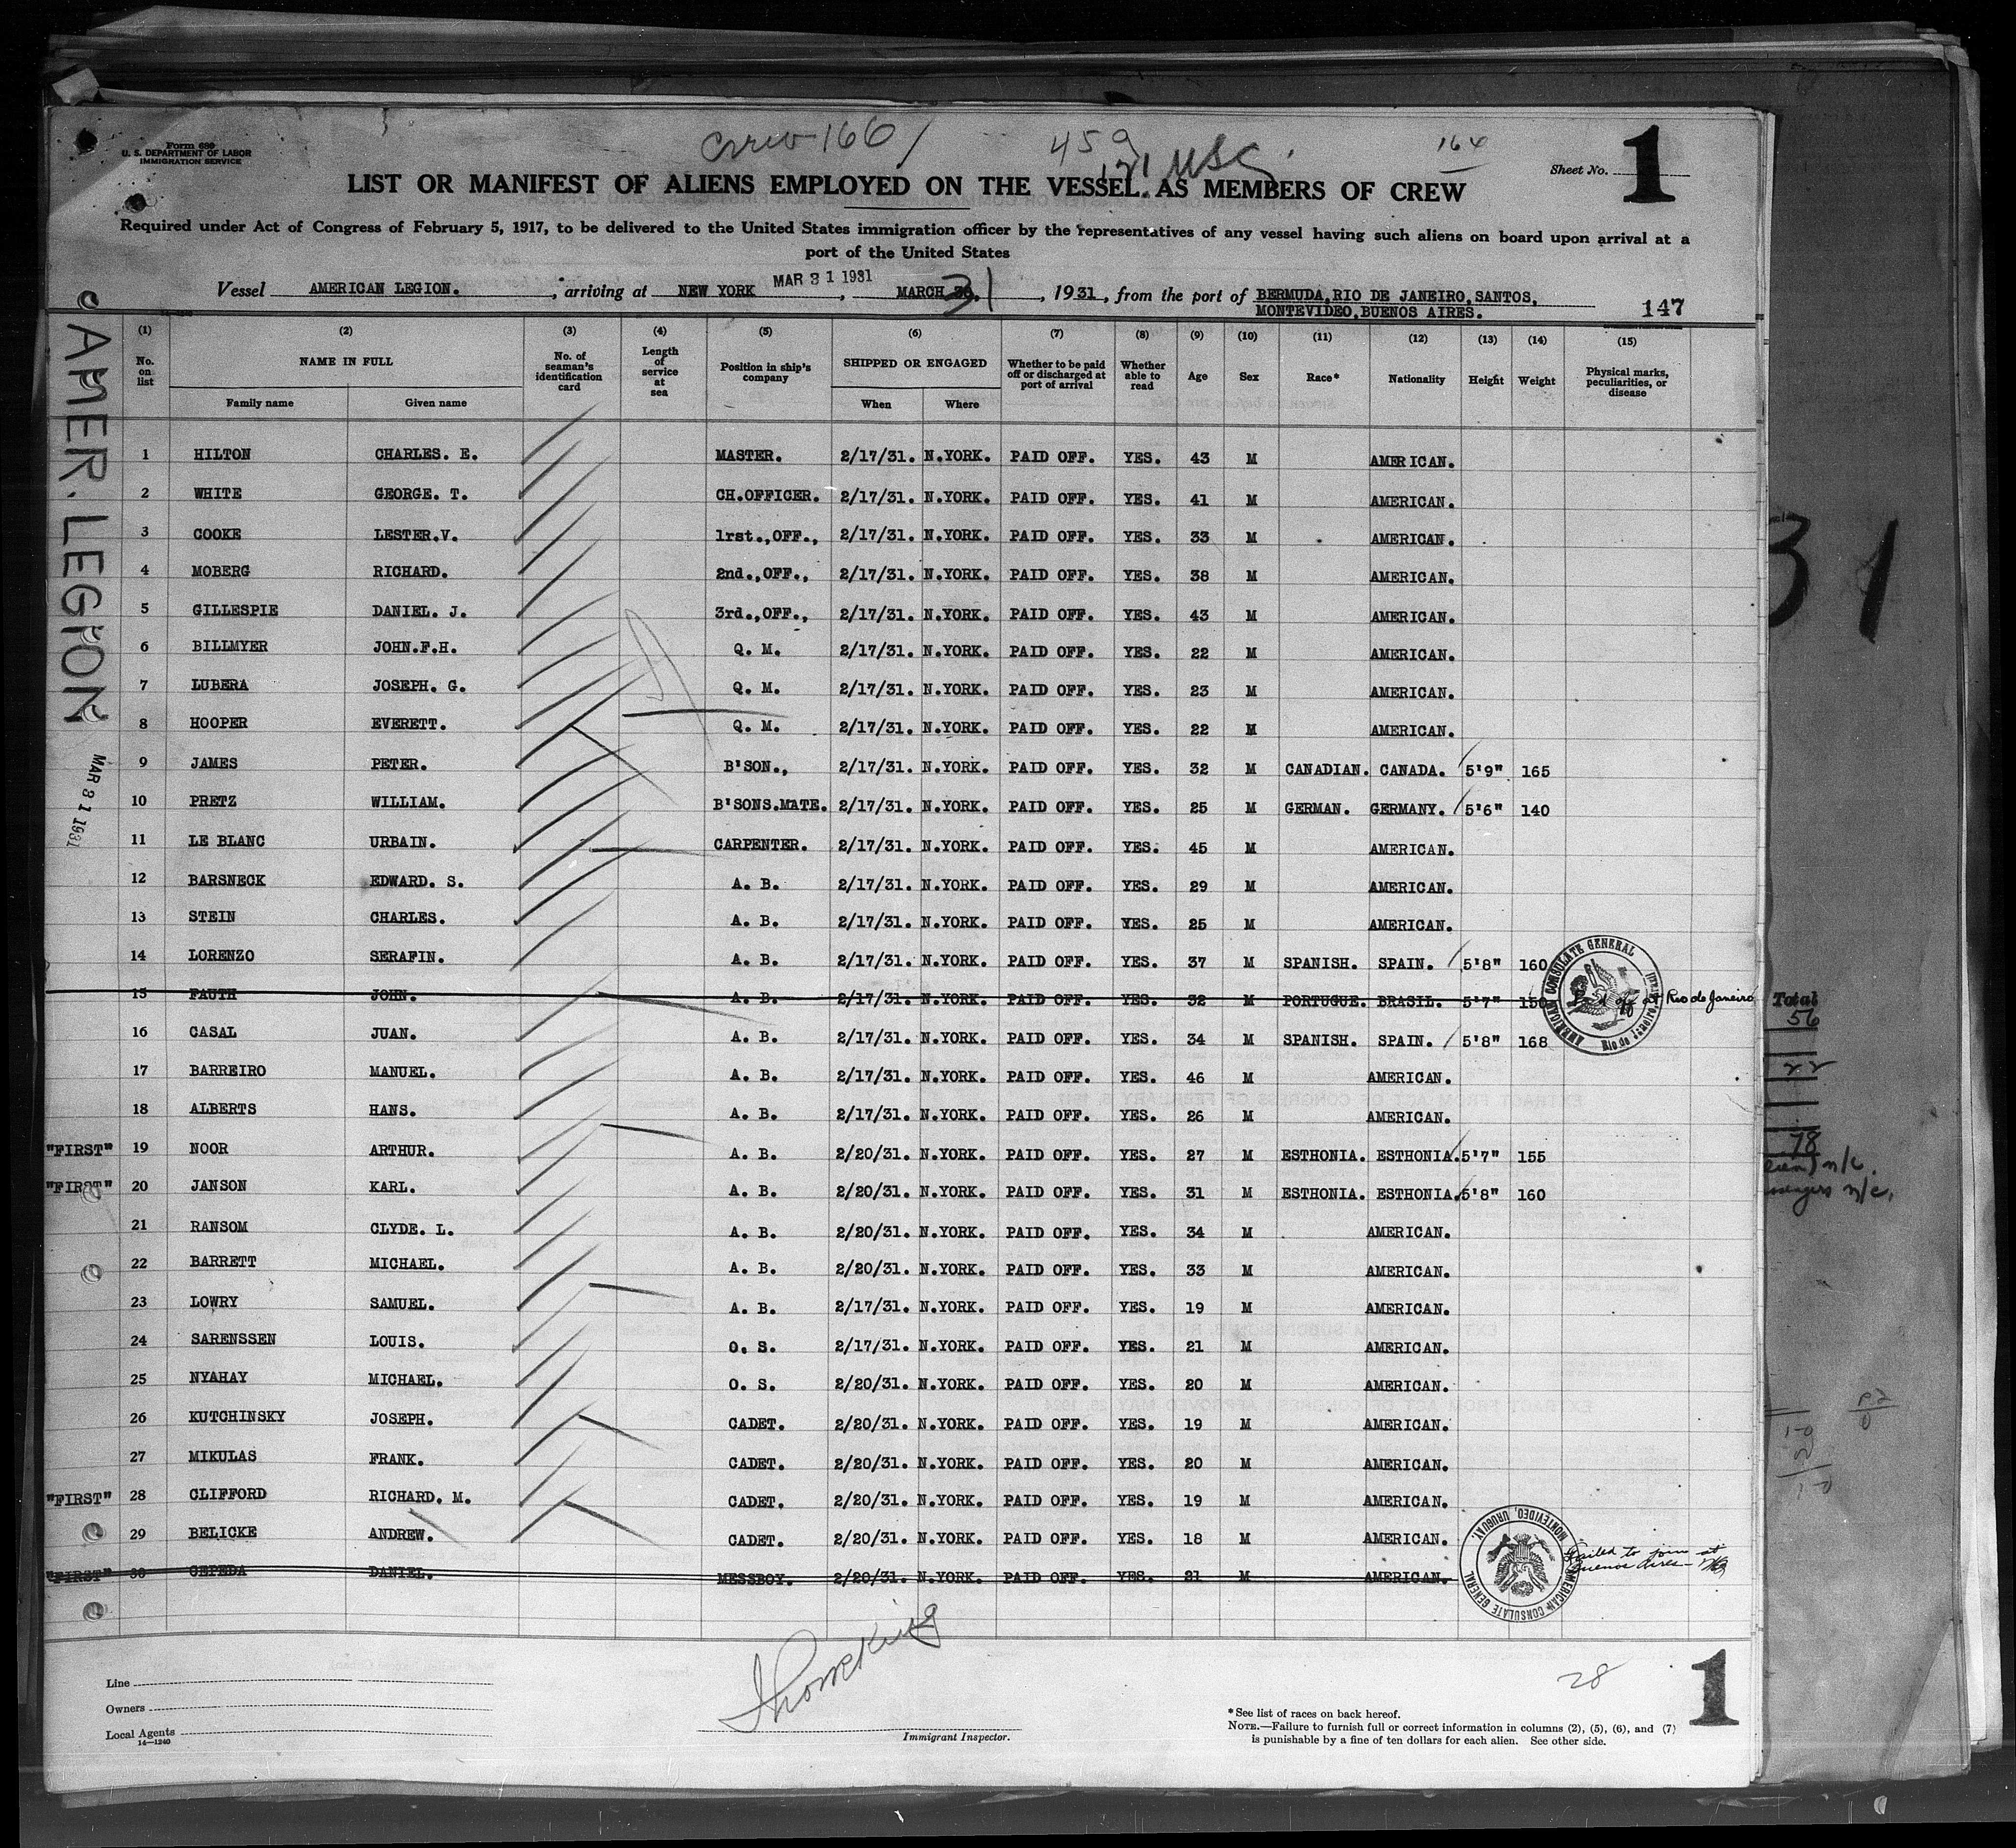 Crew 166/
459
171 USC.
164
Form 689
U. S. DEPARTMENT OF LABOR
IMMIGRATION SERVICE
Sheet No. 1
LIST OR MANIFEST OF ALIENS EMPLOYED ON THE VESSEL AS MEMBERS OF CREW
Required under Act of Congress of February 5, 1917, to be delivered to the United States immigration officer by the representatives of any vessel having such aliens on board upon arrival at a
port of the United States
MAR 31 1931
Vessel AMERICAN LEGION. , arriving at NEW YORK , MARCH 31 , 1931, from the port of BERMUDA, RIO DE JANEIRO, SANTOS,
MONTEVIDEO, BUENOS AIRES.
147
AMER. LEGION
MAR 31 1931
(1) (2) (3) (4) (5) (6) (7) (8) (9) (10) (11) (12) (13) (14) (15)
No. on list
NAME IN FULL
Family name Given name
No. of seaman's identification card
Length of service at sea
Position in ship's company
SHIPPED OR ENGAGED
When Where
Whether to be paid off or discharged at port of arrival
Whether able to read
Age Sex Race* Nationality Height Weight
Physical marks, peculiarities, or disease
1 HILTON CHARLES. E. MASTER. 2/17/31. N.YORK. PAID OFF. YES. 43 M AMERICAN.
2 WHITE GEORGE. T. CH.OFFICER. 2/17/31. N.YORK. PAID OFF. YES. 41 M AMERICAN.
3 COOKE LESTER.V. 1rst.,OFF., 2/17/31. N.YORK. PAID OFF. YES. 33 M AMERICAN.
4 MOBERG RICHARD. 2nd.,OFF., 2/17/31. N.YORK. PAID OFF. YES. 38 M AMERICAN.
5 GILLESPIE DANIEL. J. 3rd.,OFF., 2/17/31. N.YORK. PAID OFF. YES. 43 M AMERICAN.
6 BILLMYER JOHN.F.H. Q. M. 2/17/31. N.YORK. PAID OFF. YES. 22 M AMERICAN.
7 LUBERA JOSEPH. G. Q. M. 2/17/31. N.YORK. PAID OFF. YES. 23 M AMERICAN.
8 HOOPER EVERETT. Q. M. 2/17/31. N.YORK. PAID OFF. YES. 22 M AMERICAN.
9 JAMES PETER. B'SON., 2/17/31. N.YORK. PAID OFF. YES. 32 M CANADIAN. CANADA. 5'9" 165
10 PRETZ WILLIAM. B'SONS.MATE. 2/17/31. N.YORK. PAID OFF. YES. 25 M GERMAN. GERMANY. 5'6" 140
11 LE BLANC URBAIN. CARPENTER. 2/17/31. N.YORK. PAID OFF. YES. 45 M AMERICAN.
12 BARSNECK EDWARD. S. A. B. 2/17/31. N.YORK. PAID OFF. YES. 29 M AMERICAN.
13 STEIN CHARLES. A. B. 2/17/31. N.YORK. PAID OFF. YES. 25 M AMERICAN.
14 LORENZO SERAFIN. A. B. 2/17/31. N.YORK. PAID OFF. YES. 37 M SPANISH. SPAIN. 5'8" 160
15 FAUTH JOHN. A. B. 2/17/31. N.YORK. PAID OFF. YES. 32 M PORTUGUE. BRASIL. 5'7" 150 at Rio de Janeiro
AMERICAN CONSULATE GENERAL Rio de Janeiro
16 CASAL JUAN. A. B. 2/17/31. N.YORK. PAID OFF. YES. 34 M SPANISH. SPAIN. 5'8" 168
17 BARREIRO MANUEL. A. B. 2/17/31. N.YORK. PAID OFF. YES. 46 M AMERICAN.
18 ALBERTS HANS. A. B. 2/17/31. N.YORK. PAID OFF. YES. 26 M AMERICAN.
"FIRST" 19 NOOR ARTHUR. A. B. 2/20/31. N.YORK. PAID OFF. YES. 27 M ESTHONIA. ESTHONIA. 5'7" 155
"FIRST" 20 JANSON KARL. A. B. 2/20/31. N.YORK. PAID OFF. YES. 31 M ESTHONIA. ESTHONIA. 5'8" 160
21 RANSOM CLYDE. L. A. B. 2/20/31. N.YORK. PAID OFF. YES. 34 M AMERICAN.
22 BARRETT MICHAEL. A. B. 2/20/31. N.YORK. PAID OFF. YES. 33 M AMERICAN.
23 LOWRY SAMUEL. A. B. 2/17/31. N.YORK. PAID OFF. YES. 19 M AMERICAN.
24 SARENSSEN LOUIS. O. S. 2/17/31. N.YORK. PAID OFF. YES. 21 M AMERICAN.
25 NYAHAY MICHAEL. O. S. 2/20/31. N.YORK. PAID OFF. YES. 20 M AMERICAN.
26 KUTCHINSKY JOSEPH. CADET. 2/20/31. N.YORK. PAID OFF. YES. 19 M AMERICAN.
27 MIKULAS FRANK. CADET. 2/20/31. N.YORK. PAID OFF. YES. 20 M AMERICAN.
"FIRST" 28 CLIFFORD RICHARD. M. CADET. 2/20/31. N.YORK. PAID OFF. YES. 19 M AMERICAN.
29 BELICKE ANDREW. CADET. 2/20/31. N.YORK. PAID OFF. YES. 18 M AMERICAN.
"FIRST" 30 CEPEDA DANIEL. MESSBOY. 2/20/31. N.YORK. PAID OFF. YES. 21 M AMERICAN.
Failed to join at
Buenos Aires
AMERICAN CONSULATE GENERAL MONTEVIDEO, URUGUAY.
Line
Owners
Local Agents
14—1240
Immigrant Inspector.
28
*See list of races on back hereof.
NOTE.—Failure to furnish full or correct information in columns (2), (5), (6), and (7)
is punishable by a fine of ten dollars for each alien. See other side.
1
31
Total
56
22
78
n/c.
n/c.